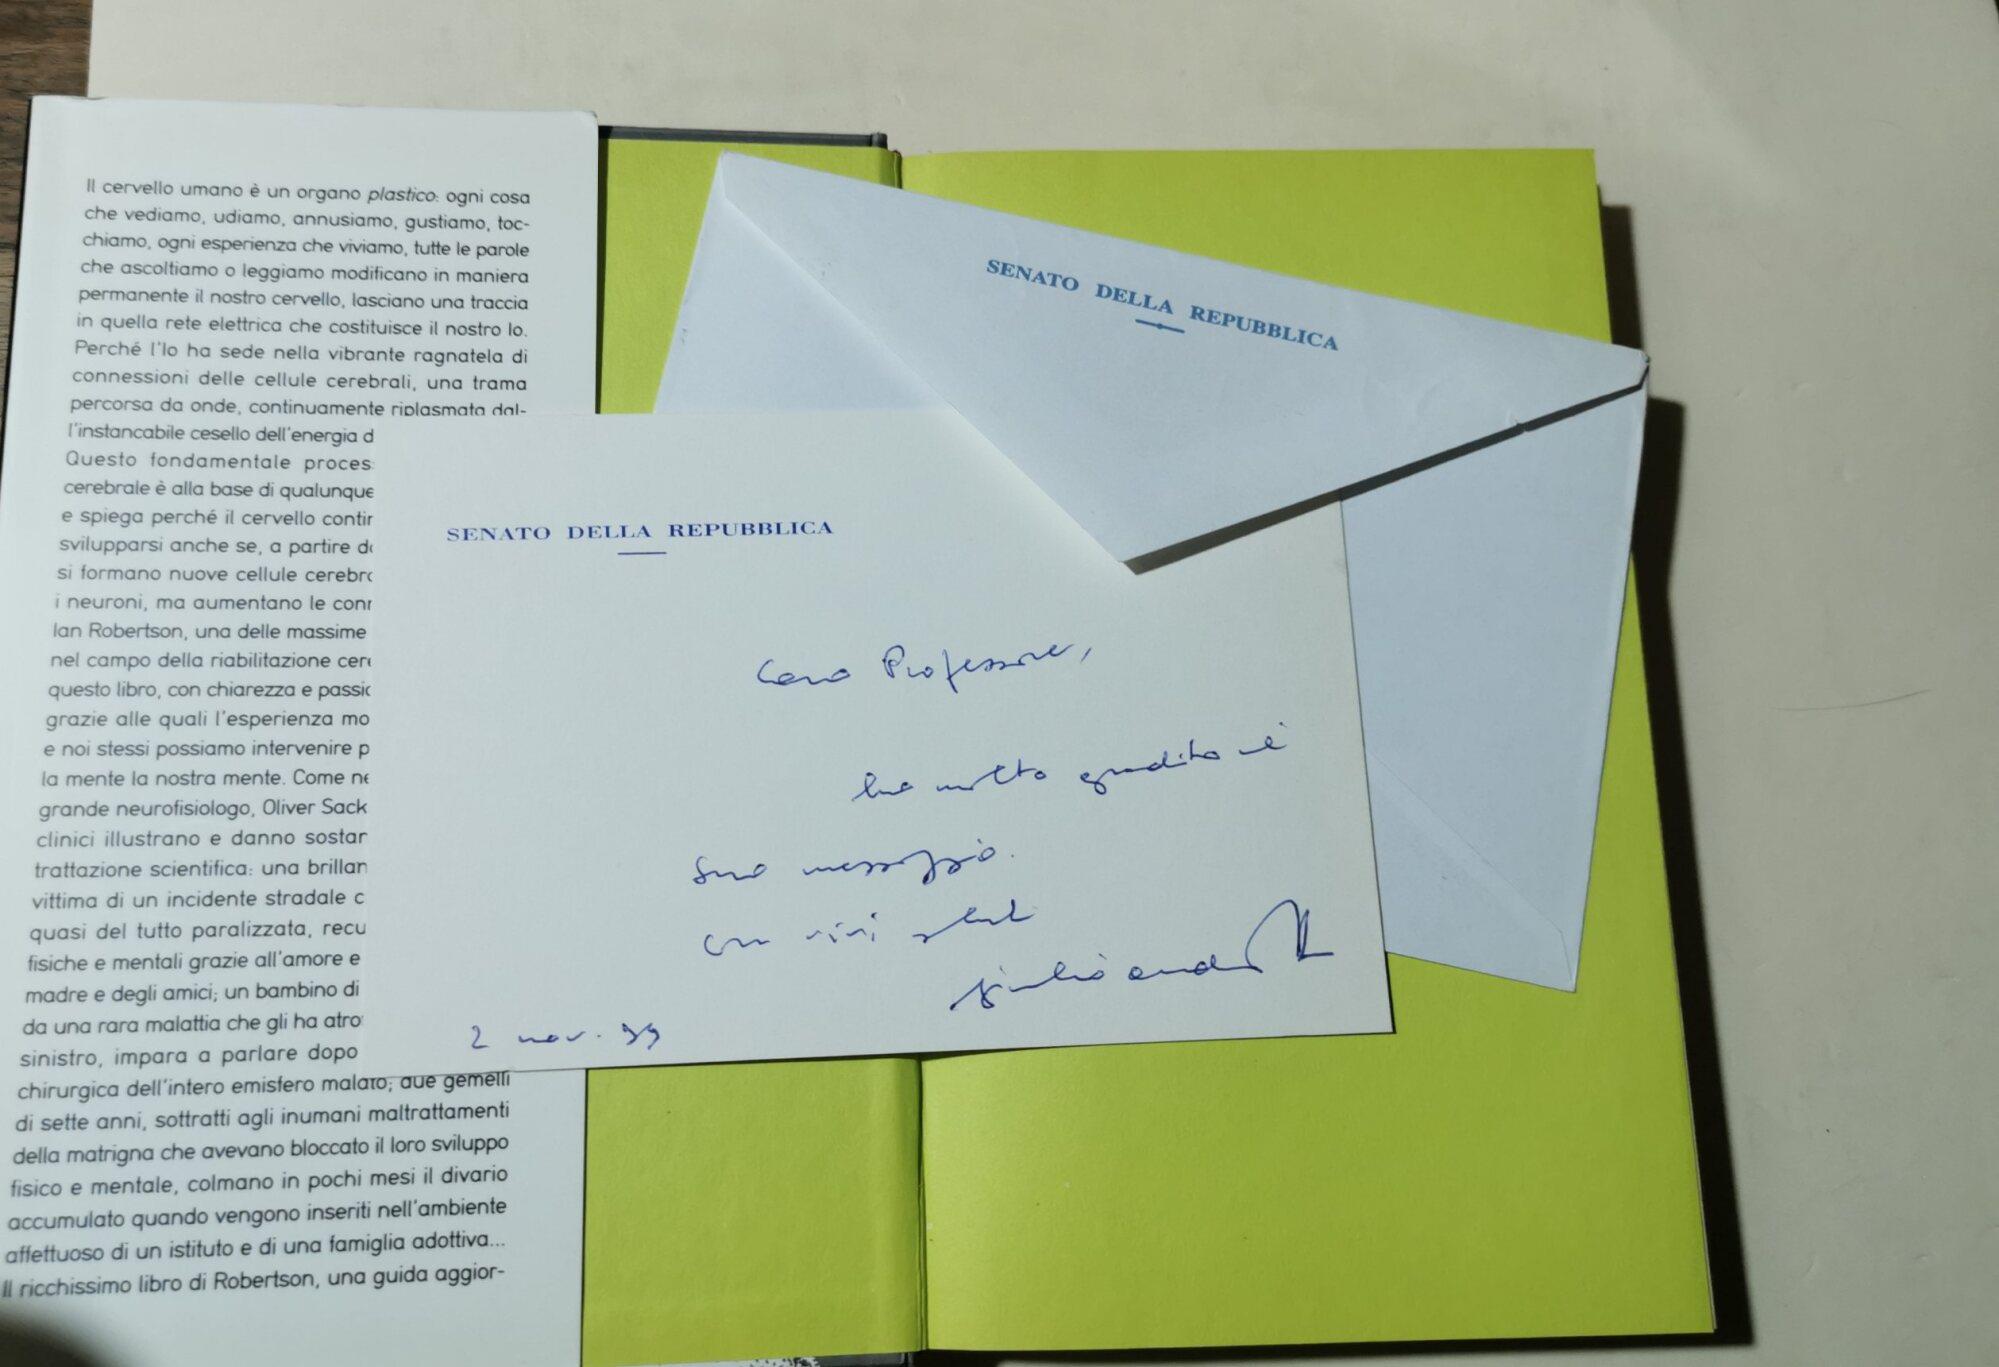 Il cervello umano è un organo plastico: ogni cosa
che vediamo, udiamo, annusiamo, gustiamo, toc-
chiamo, ogni esperienza che viviamo, tutte le parole
che ascoltiamo o leggiamo modificano in maniera
permanente il nostro cervello, lasciano una traccia
in quella rete elettrica che costituisce il nostro Io.
Perché l'Io ha sede nella vibrante ragnatela di
connessioni delle cellule cerebrali, una trama
percorsa da onde, continuamente riplasmata dal-
l'instancabile cesello dell'energia d
Questo fondamentale proces
cerebrale è alla base di qualunque
e spiega perché il cervello contin
svilupparsi anche se, a partire da
si formano nuove cellule cerebra
i neuroni, ma aumentano le conn
Ian Robertson, una delle massime
nel campo della riabilitazione cere
questo libro, con chiarezza e passio
grazie alle quali l'esperienza mo
e noi stessi possiamo intervenire p
la mente la nostra mente. Come ne
grande neurofisiologo, Oliver Sack
clinici illustrano e danno sostan
trattazione scientifica: una brillan
vittima di un incidente stradale c
quasi del tutto paralizzata, recu
fisiche e mentali grazie all'amore e
madre e degli amici; un bambino di
da una rara malattia che gli ha atro
sinistro, impara a parlare dopo
chirurgica dell'intero emisfero malato; due gemelli
di sette anni, sottratti agli inumani maltrattamenti
della matrigna che avevano bloccato il loro sviluppo
fisico e mentale, colmano in pochi mesi il divario
accumulato quando vengono inseriti nell'ambiente
affettuoso di un istituto e di una famiglia adottiva...
Il ricchissimo libro di Robertson, una guida aggior-
SENATO DELLA REPUBBLICA
SENATO DELLA REPUBBLICA
Caro Professore,
ho molto gradito il
Suo messaggio.
Con vivi saluti
Giulio Andreotti
2 nov. 99